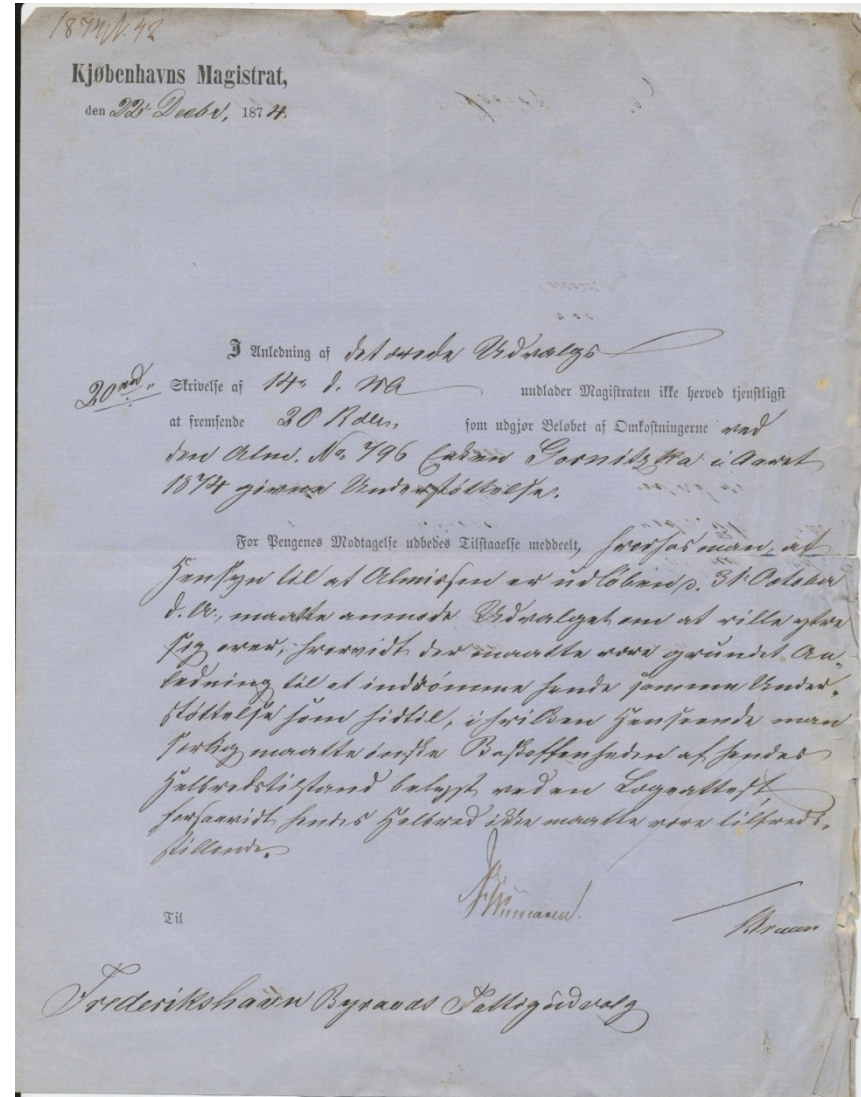 1874 N. 42
Kjøbenhavns Magistrat,
den 22 Decbr, 1874.
I Anledning af det ærede Udvalgs
20 rd. Skrivelse af 14 d. M. undlader Magistraten ikke herved tjenstligst
at fremsende 20 Rdlr. som udgjør Beløbet af Omkostningerne ved
den Alm. No 796 Enken Gornitzka i Aaret
1874 givne Understöttelse.
For Pengenes Modtagelse udbedes Tilstaaelse meddeelt, hvorhos man,
Hensyn til at Almissen er udløben d. 31 October
d. A., maatte anmode Udvalget om at ville yttre
sig over, hvorvidt der maatte være grundet An-
ledning til at indrömme hende samme Under-
stöttelse som hidtil, i hvilken Henseende man
særlig maatte önske Beskaffenheden af hendes
Helbredstilstand belyst ved en Lægeattest,
forsaavidt hendes Helbred ikke maatte være tilfreds-
stillende.
Til
Frederikshavn Byraads Fattigudvalg